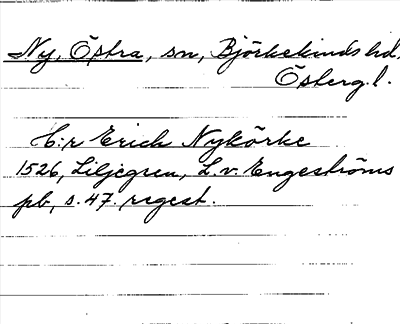 Ny, Östra, sn, Björkekinds hd.
Österg.l.
H:r Erich Nykörke
1526, Liljegren, L. v. Engeströms
pb, s. 47. regest.